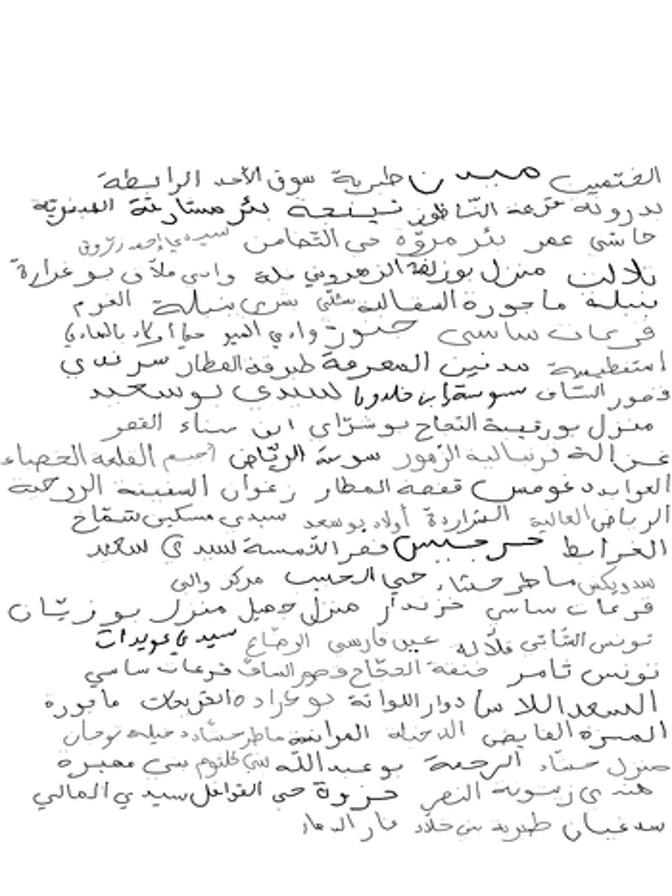 الختمين ميدن طبرية سوق الأحد الرابطة
بدرونة مترعة الناظور نينجة بئر مستارتة
حاشي عمر بئر مروة حي التضامن سيدي أحمد زروق
تلالت منزل بوزلفة الزهروني ملة وادي ملاق بو غرارة
بنبلة ماجورة السفالة بشري بنبلة القرم
فرعات ساسي خنور وادي الميو بالهادي
استفطيمية مدنين المعرفة طبرقة القطار سرندي
قصور الساف سوسة ابن خلدون لسيدي بوسعيد
منزل بورقيبة النجاح بوشراي ابن سناء القصر
غزالة قرنبالية الزهور سوسة الرياض القلعة الخصباء
العوابد دغومس قفصة المطار زغوان السفينة الروحية
الرياض العالية الشراردة أولاد بوسعد سيدي مسكين شماخ
الخرايط جرجيس قصر التمسة لسيدي سعيد
سدويكس ماطر حشاد حي الحبيب مركز والي
فرعات ساسي خزندار منزل جميل منزل بوزيان
تونس الشاتي قلالة عين فارسي الرضاع سيدي عويدات
تونس ثامر خنقة الحجاج قصور الساف فرعات ساسي
السعد اللاسا دوار اللواتة بو غرادة الفريحات ماجورة
المسزة القايض الدخيلة الفرانسة ماطر حشاد دخيلة توجان
منزل حشاد الرحمة بو عبدالله بني كلثوم بني معيرة
هندي زيتونة النصر حزوة حي القوافل سيدي المالي
سدغيان طبربة بني خلاد